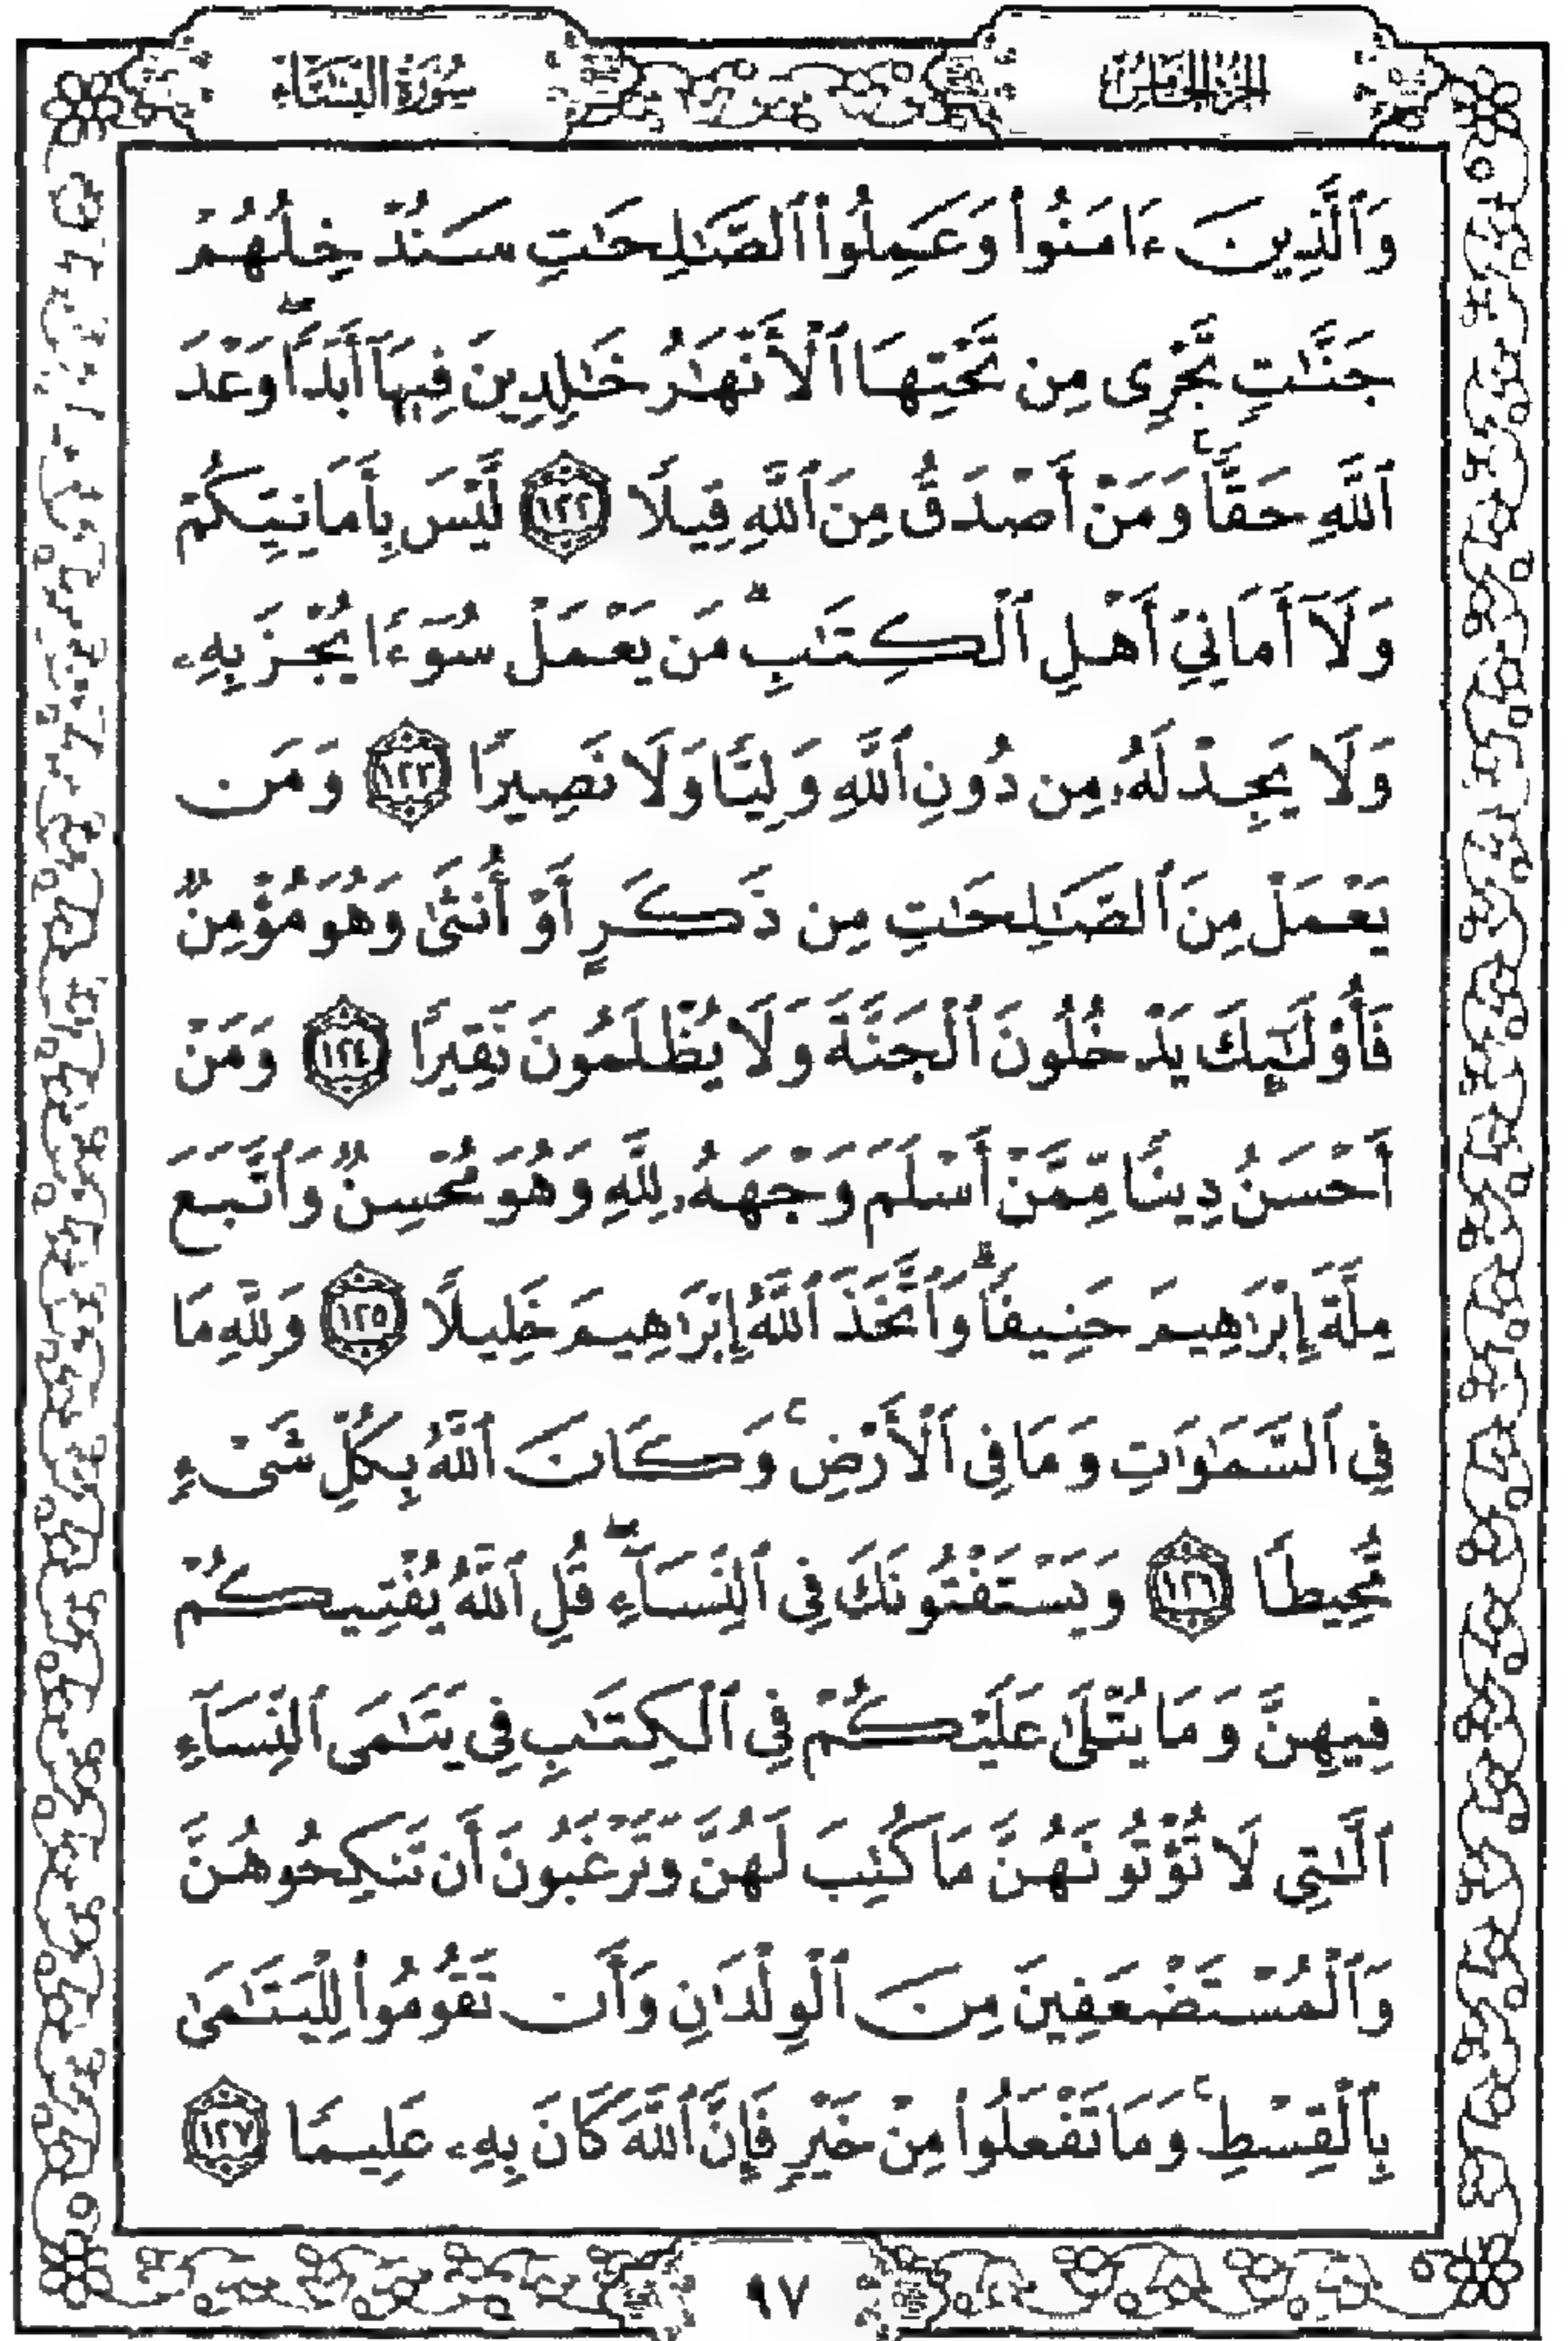 الجزء الخامس
سورة النساء
وَٱلَّذِينَ ءَامَنُوا۟ وَعَمِلُوا۟ ٱلصَّـٰلِحَـٰتِ سَنُدْخِلُهُمْ
جَنَّـٰتٍ تَجْرِى مِن تَحْتِهَا ٱلْأَنْهَـٰرُ خَـٰلِدِينَ فِيهَآ أَبَدًا ۖ وَعْدَ
ٱللَّهِ حَقًّا ۚ وَمَنْ أَصْدَقُ مِنَ ٱللَّهِ قِيلًا ١٢٢ لَّيْسَ بِأَمَانِيِّكُمْ
وَلَآ أَمَانِىِّ أَهْلِ ٱلْكِتَـٰبِ ۗ مَن يَعْمَلْ سُوٓءًا يُجْزَ بِهِۦ
وَلَا يَجِدْ لَهُۥ مِن دُونِ ٱللَّهِ وَلِيًّا وَلَا نَصِيرًا ١٢٣ وَمَن
يَعْمَلْ مِنَ ٱلصَّـٰلِحَـٰتِ مِن ذَكَرٍ أَوْ أُنثَىٰ وَهُوَ مُؤْمِنٌ
فَأُو۟لَـٰٓئِكَ يَدْخُلُونَ ٱلْجَنَّةَ وَلَا يُظْلَمُونَ نَقِيرًا ١٢٤ وَمَنْ
أَحْسَنُ دِينًا مِّمَّنْ أَسْلَمَ وَجْهَهُۥ لِلَّهِ وَهُوَ مُحْسِنٌ وَٱتَّبَعَ
مِلَّةَ إِبْرَٰهِيمَ حَنِيفًا ۗ وَٱتَّخَذَ ٱللَّهُ إِبْرَٰهِيمَ خَلِيلًا ١٢٥ وَلِلَّهِ مَا
فِى ٱلسَّمَـٰوَٰتِ وَمَا فِى ٱلْأَرْضِ ۚ وَكَانَ ٱللَّهُ بِكُلِّ شَىْءٍ
مُّحِيطًا ١٢٦ وَيَسْتَفْتُونَكَ فِى ٱلنِّسَآءِ ۖ قُلِ ٱللَّهُ يُفْتِيكُمْ
فِيهِنَّ وَمَا يُتْلَىٰ عَلَيْكُمْ فِى ٱلْكِتَـٰبِ فِى يَتَـٰمَى ٱلنِّسَآءِ
ٱلَّـٰتِى لَا تُؤْتُونَهُنَّ مَا كُتِبَ لَهُنَّ وَتَرْغَبُونَ أَن تَنكِحُوهُنَّ
وَٱلْمُسْتَضْعَفِينَ مِنَ ٱلْوِلْدَٰنِ وَأَن تَقُومُوا۟ لِلْيَتَـٰمَىٰ
بِٱلْقِسْطِ ۚ وَمَا تَفْعَلُوا۟ مِنْ خَيْرٍ فَإِنَّ ٱللَّهَ كَانَ بِهِۦ عَلِيمًا ١٢٧
٩٧